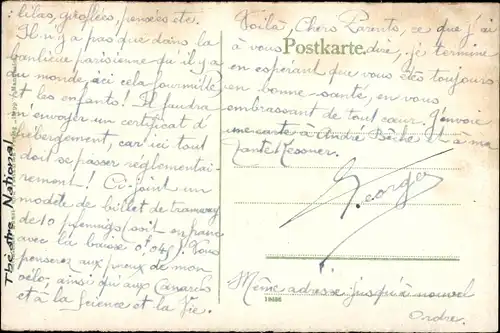 : lilas, giroflées, pensées etc.
Il n'y a pas que dans la
banlieue parisienne qu'il y a
du monde, ici cela fourmille
et les enfants! Il faudra
m'envoyer un certificat d'
hébergement, car ici tout
doit se passer réglementai-
rement! Ci-joint un
modèle de billet de tramway
de 10 pfennigs (soit en franc
avec la baisse 0f,045). Vous
penserez aux pneus de mon
vélo, ainsi qu'aux Canards
et à la Science et la Vie.
Postkarte
Voilà, Chers Parents, ce que j'ai
à vous dire, je termine
en espérant que vous êtes toujours
en bonne santé, en vous
embrassant de tout cœur. J'envoie
une carte à André Bêche et à ma
Tante Messner.
Georges
Même adresse jusqu'à nouvel
Ordre.
19686
Théâtre National